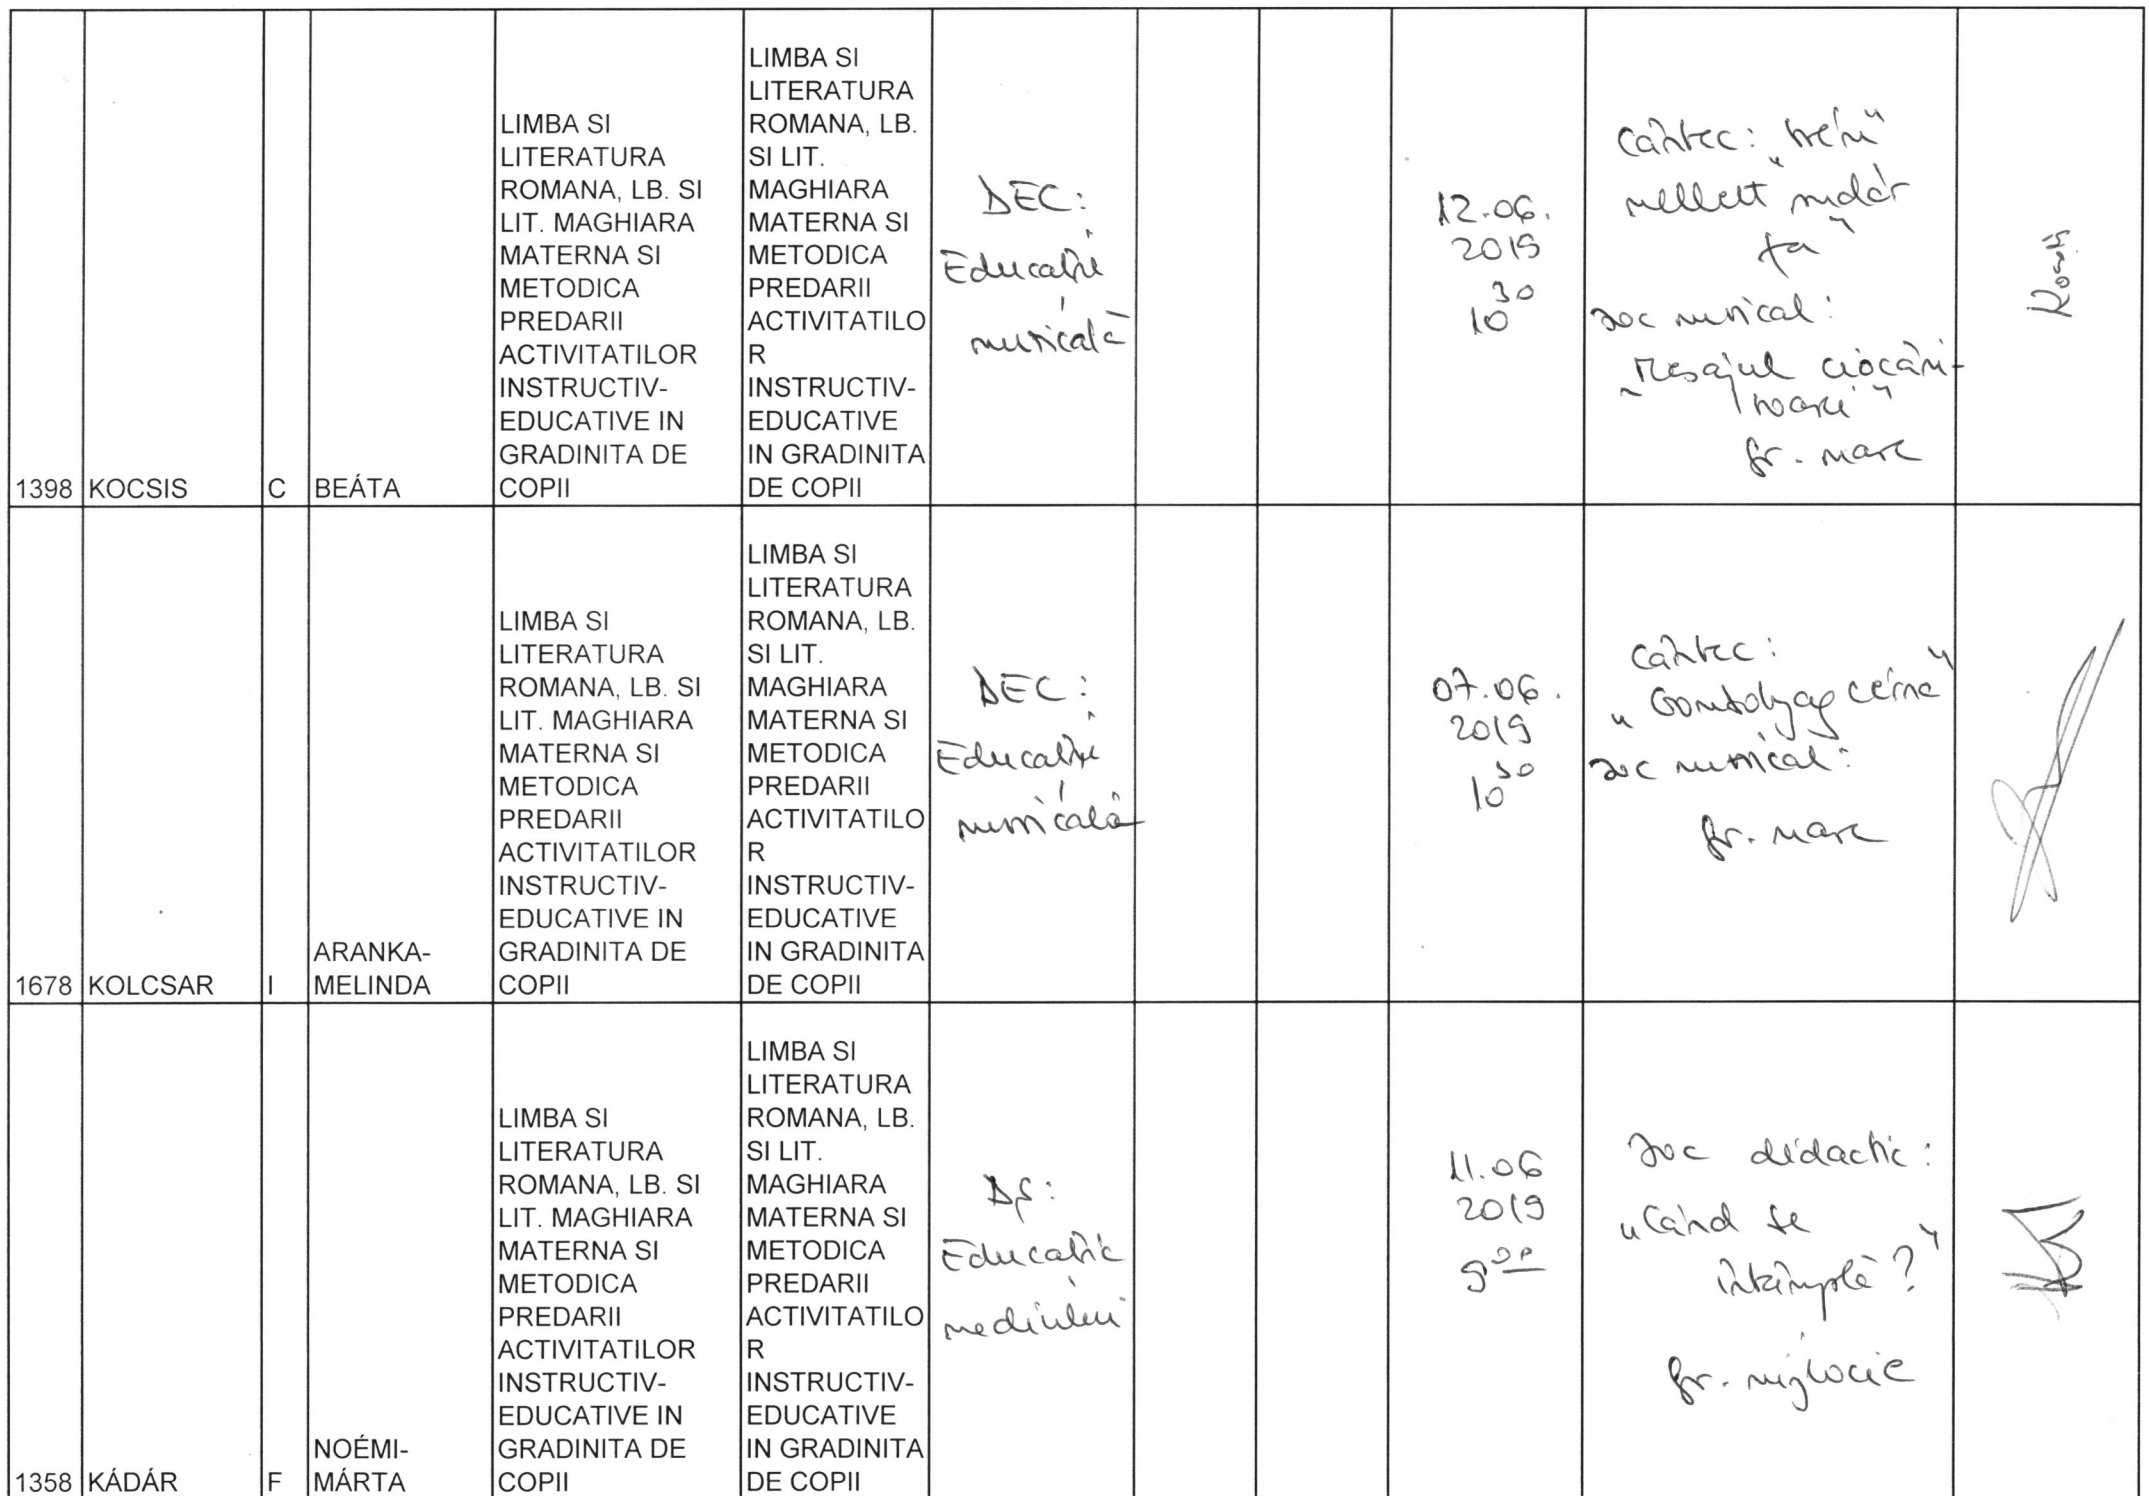 LIMBA SI
LITERATURA
ROMANA, LB. SI
LIT. MAGHIARA
MATERNA SI
METODICA
PREDARII
ACTIVITATILOR
INSTRUCTIV-
EDUCATIVE IN
GRADINITA DE
COPII
LIMBA SI
LITERATURA
ROMANA, LB.
SI LIT.
MAGHIARA
MATERNA SI
METODICA
PREDARII
ACTIVITATILO
R
INSTRUCTIV-
EDUCATIVE
IN GRADINITA
DE COPII
DEC:
Educație
muzicală
12.06.
2019
10 30
Cântec:
mellett
fa"
Joc muzical:
„Mesajul ciocăni-
toarei"
gr. mare
1398 KOCSIS C BEÁTA
LIMBA SI
LITERATURA
ROMANA, LB. SI
LIT. MAGHIARA
MATERNA SI
METODICA
PREDARII
ACTIVITATILOR
INSTRUCTIV-
EDUCATIVE IN
GRADINITA DE
COPII
LIMBA SI
LITERATURA
ROMANA, LB.
SI LIT.
MAGHIARA
MATERNA SI
METODICA
PREDARII
ACTIVITATILO
R
INSTRUCTIV-
EDUCATIVE
IN GRADINITA
DE COPII
DEC:
Educație
muzicală
07.06.
2019
10 30
Cântec:
„Gombolyag cérna"
Joc muzical:
gr. mare
1678 KOLCSAR I ARANKA-
MELINDA
LIMBA SI
LITERATURA
ROMANA, LB. SI
LIT. MAGHIARA
MATERNA SI
METODICA
PREDARII
ACTIVITATILOR
INSTRUCTIV-
EDUCATIVE IN
GRADINITA DE
COPII
LIMBA SI
LITERATURA
ROMANA, LB.
SI LIT.
MAGHIARA
MATERNA SI
METODICA
PREDARII
ACTIVITATILO
R
INSTRUCTIV-
EDUCATIVE
IN GRADINITA
DE COPII
DȘ:
Educația
mediului
11.06
2019
9 00
Joc didactic:
„Când se
întâmplă?"
gr. mijlocie
1358 KÁDÁR F NOÉMI-
MÁRTA